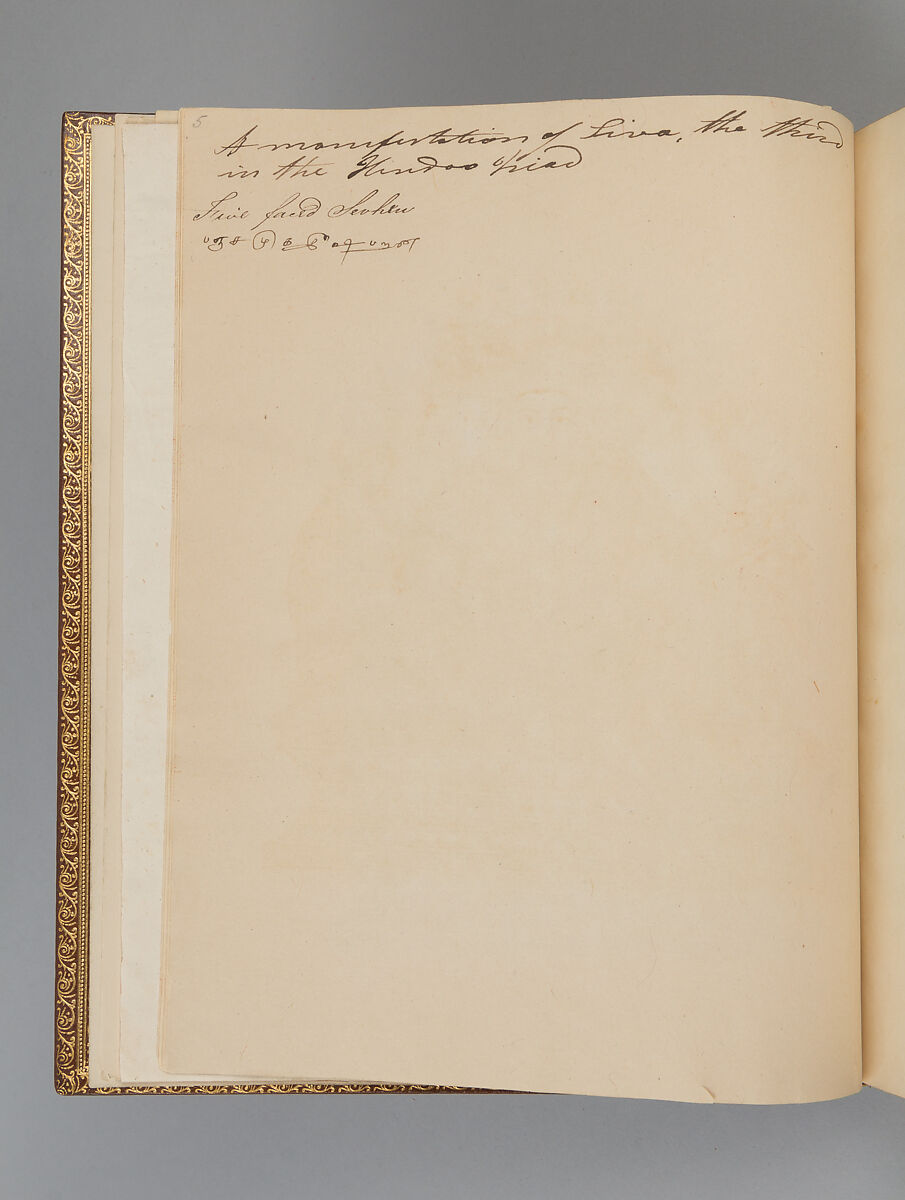 5
A manifestation of Siva, the third
in the Hindoo triad
Five faced